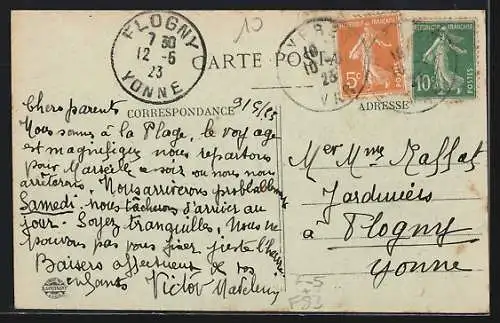 FLOGNY
7 30
12 - 6
23
YONNE
10
CARTE POSTALE
10
23
VAR
5c
10c
POSTES
CORRESPONDANCE
ADRESSE
Chers parents
Nous sommes à la Plage, le voyage
est magnifique nous repartons
pour Marseille ce soir ou nous nous
arrêterons. Nous arriverons probablement
Samedi. nous tâcherons d'arriver au
jour. Soyez tranquilles. Nous ne
pouvons pas vous fixer juste l'heure
Baisers affectueux de vos
enfants Victor Madeleine
Mer Mme Raffat
Jardiniers
à Flogny
Yonne